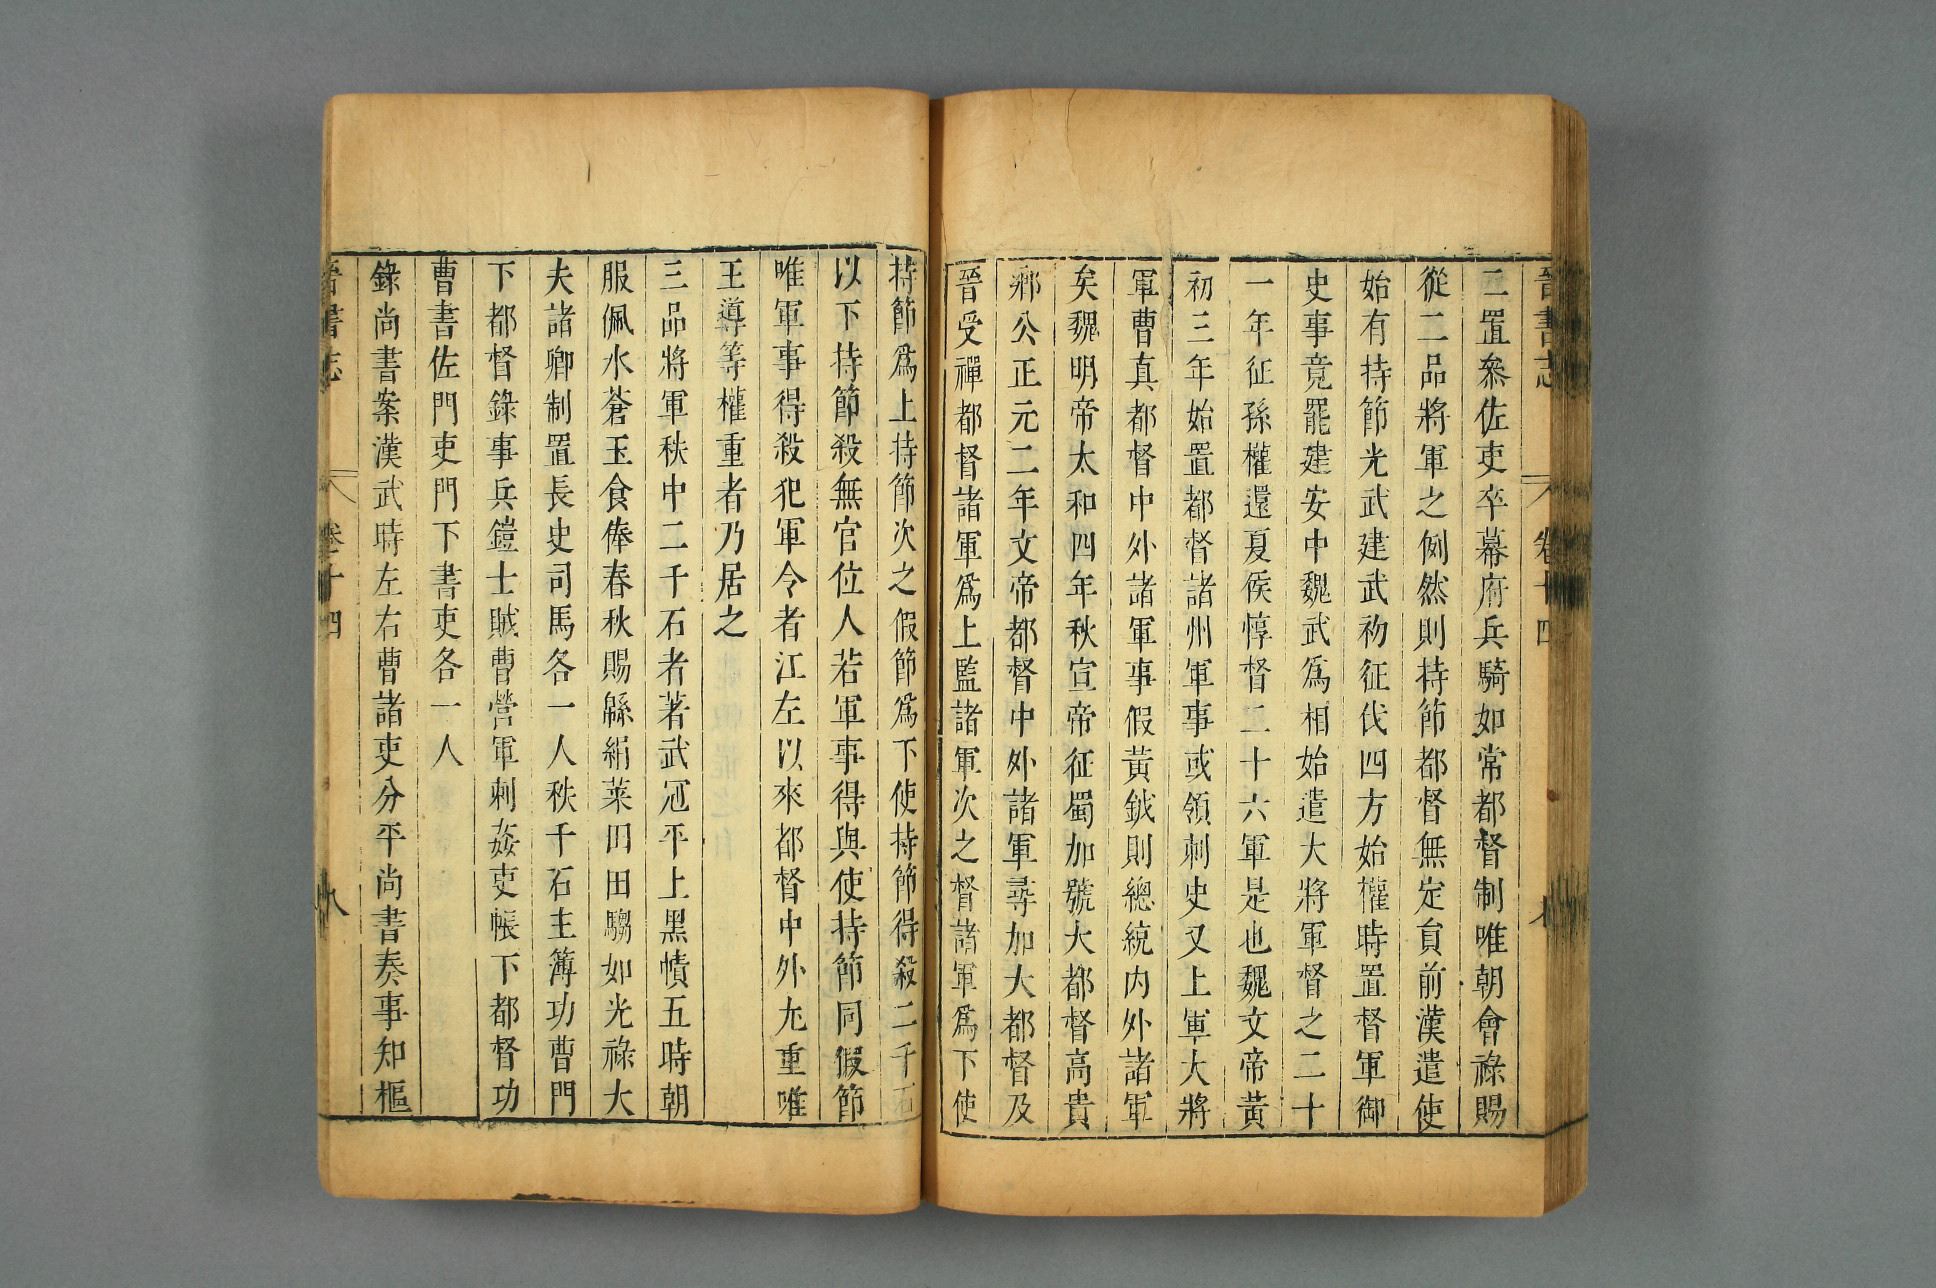 晉書志 卷十四
二置參佐吏卒幕府兵騎如常都督制唯朝會祿賜
從二品將軍之例然則持節都督無定員前漢遣使
始有持節光武建武初征伐四方始權時置督軍御
史事竟罷建安中魏武爲相始遣大將軍督之二十
一年征孫權還夏侯惇督二十六軍是也魏文帝黃
初三年始置都督諸州軍事或領刺史又上軍大將
軍曹真都督中外諸軍事假黃鉞則總統內外諸軍
矣魏明帝太和四年秋宣帝征蜀加號大都督高貴
鄉公正元二年文帝都督中外諸軍尋加大都督及
晉受禪都督諸軍爲上監諸軍次之督諸軍爲下使
持節爲上持節次之假節爲下使持節得殺二千石
以下持節殺無官位人若軍事得與使持節同假節
唯軍事得殺犯軍令者江左以來都督中外尤重唯
王導等權重者乃居之
三品將軍秩中二千石者著武冠平上黑幘五時朝
服佩水蒼玉食俸春秋賜緜絹菜田田騶如光祿大
夫諸卿制置長史司馬各一人秩千石主簿功曹門
下都督錄事兵鎧士賊曹營軍刺姦吏帳下都督功
曹書佐門吏門下書吏各一人
錄尚書案漢武時左右曹諸吏分平尚書奏事知樞
晉書志 卷十四 八